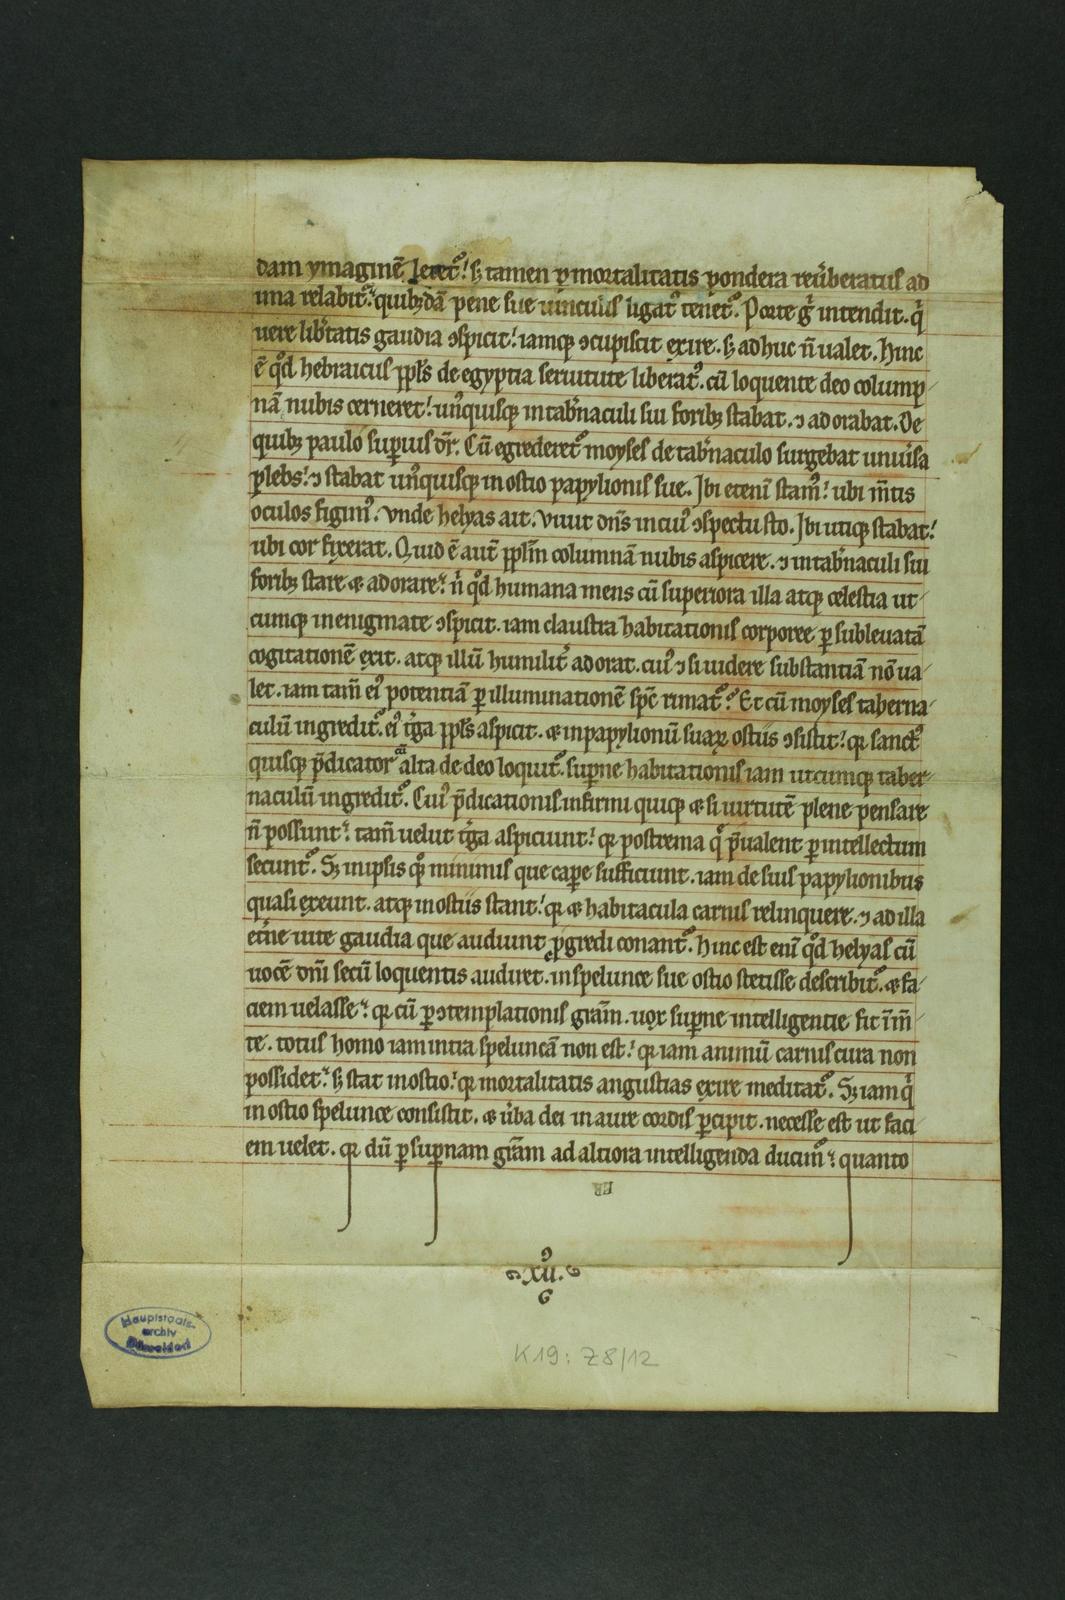 dam ymaginē letet᷒! sꝫ tamen ꝑ mortalitatis pondera reu̓beratus ad
una relabit᷒. quibꝫdā pene sue uinculis ligat᷒ tenet᷒. Porte g̊ intendit. q̇
uere lib̓tatis gaudia ↄspicit! iamqꝫ ↄcupiscit exire. sꝫ adhuc n̄ ualet. Hinc
ē qd̊ hebraicus ppl̄s de egyptia seruitute liberat᷒. cū loquente deo colump
nā nubis cerneret! un᷒quisqꝫ in tab̓naculi sui foribꝫ stabat. ⁊ adorabat. De
quibꝫ paulo supius dr̄. Cū egrederet᷒ moyses de tab̓naculo surgebat uniu̓sa
plebs! ⁊ stabat un᷒quisqꝫ in ostio papylionis sue. Ibi etenī stam᷒! ubi m̄tis
oculos figim᷒. Vnde helyas ait. Viuit dn̄s in cui᷒ ↄspectu sto. Ibi utiqꝫ stabat!
ubi cor fixerat. Quid ē aut̄ ppl̄m columnā nubis aspicere. ⁊ in tab̓naculi sui
foribꝫ stare & adorare! n̓ qd̊ humana mens cū superiora illa atqꝫ celestia ut
cumqꝫ in enigmate ↄspicit. iam claustra habitationis corporee ꝑ subleuatā
cogitationē exit. atqꝫ illū humilit̓ adorat. cui᷒ ⁊ si uidere substantiā nō ua
let. iam tam̄ ei᷒ potentiā ꝑ illuminationē spc̄ rimat᷒. Et cū moyses taberna
culū ingredit᷒. ei᷒ t̓ga ppl̄s aspicit. & in papylionū suaꝝ ostiis ↄsistit! qꝛ sanct᷒
quisqꝫ p̄dicator cū alta de deo loquit᷒. supne habitationis iam utcumqꝫ taber
naculū ingredit᷒. Cui᷒ p̄dicationis infirmi quiqꝫ & si uirtutē plene pensare
n̄ possunt! tam̄ uelut t̓ga aspiciunt! qꝛ postrema q̊ p̄ualent ꝑ intellectum
secunt᷒. Sꝫ in ipsis q̊ꝫ minimis que capere sufficiunt. iam de suis papylionibus
quasi exeunt. atqꝫ in ostiis stant! qꝛ & habitacula carnis relinquere. ⁊ ad illa
et̓ne uite gaudia que audiunt ꝓgredi conant᷒. Hinc est enī qd̊ helyas cū
uocē dn̄i secū loquentis audiret. in spelunce sue ostio stetisse describit᷒. & fa
ciem uelasse! qꝛ cū ꝑ ↄtemplationis grām. uox supne intelligentie fit ī m̄
te. totus homo iam intra speluncā non est! qꝛ iam animū carnis cura non
possidet! sꝫ stat in ostio! qꝛ mortalitatis angustias exire meditat᷒. Sꝫ iam q̇
in ostio spelunce consistit. & u̓ba dei in aure cordis ꝑcipit. necesse est ut faci
em uelet. qꝛ dū ꝑ supnam grām ad altiora intelligenda ducim᷒! quanto
.xii.
Hauptstaats-
archiv
Düsseldorf
K19: Z8/12